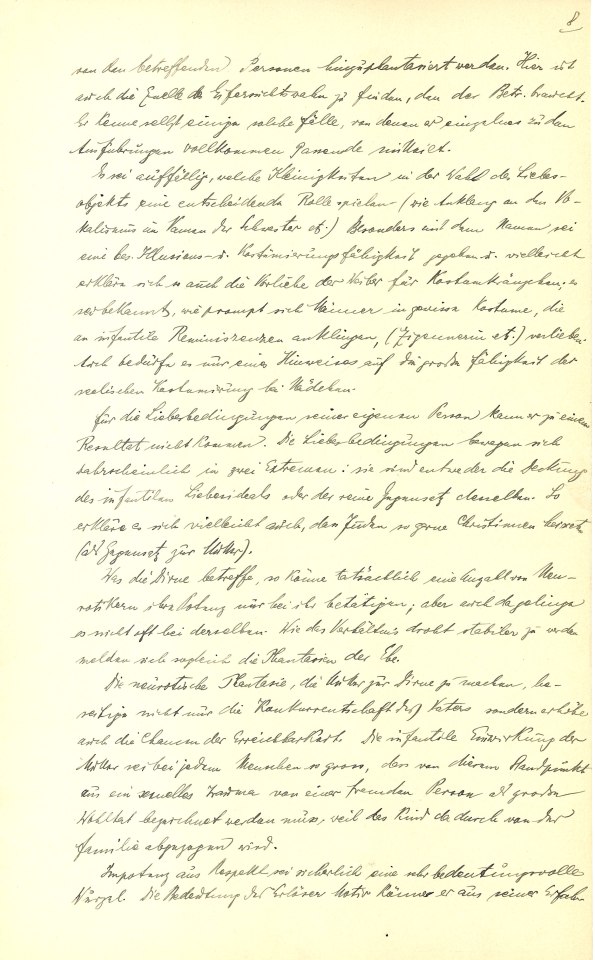 8
von den betreffenden Personen hinzuphantasiert werden. Hier ist
auch die Quelle des Eifersuchtswahns zu finden, den der Betr. braucht.
Er kenne selbst einige solche Fälle, von denen er einzelnes zu den
Ausführungen vollkommen Passende mitteilt.
Es sei auffällig, welche Kleinigkeiten in der Wahl des Liebes-
objekts eine entscheidende Rolle spielen (wie Anklang an den Vo-
kalismus im Namen der Schwester etc.) Besonders mit dem Namen sei
eine bes. Illusions- u. Kostümierungsfähigkeit gegeben u. vielleicht
erkläre sich so auch die Vorliebe der Weiber für Kostümkränzchen; es
sei bekannt, wie prompt sich Männer in gewisse Kostüme, die
an infantile Reminiszenzen anklingen, (Zigeunerin etc.) verlieben.
Auch bedürfe es nur eines Hinweises auf die große Fähigkeit der
seelischen Kostümierung bei Mädchen.
Für die Liebesbedingungen seiner eigenen Person kann er zu einem
Resultat nicht kommen. Die Liebesbedingungen bewegen sich
wahrscheinlich in zwei Extremen: sie sind entweder die Deckung
des infantilen Liebesideals oder der reine Gegensatz desselben. So
erkläre es sich vielleicht auch, dass Juden so gerne Christinnen heiraten
(als Gegensatz zur Mutter).
Was die Dirne betreffe, so könne tatsächlich eine Anzahl von Neu-
rotikern ihre Potenz nur bei ihr betätigen; aber auch da gelinge
es nicht oft bei derselben. Wie das Verhältnis droht stabiler zu werden
melden sich sogleich die Phantasien der Ehe.
Die neurotische Phantasie, die Mutter zur Dirne zu machen, be-
seitige nicht nur die Konkurrentschaft des Vaters sondern erhöhe
auch die Chancen der Erreichbarkeit. Die infantile Einwirkung der
Mutter sei bei jedem Menschen so gross, dass von diesem Standpunkt
aus ein sexuelles Trauma von einer fremden Person als große
Wohltat bezeichnet werden muss, weil das Kind dadurch von der
Familie abgezogen wird.
Impotenz aus Respekt sei sicherlich eine sehr bedeutungsvolle
Wurzel. Die Bedeutung der Erlöser Motiv könne er aus seiner Erfah-